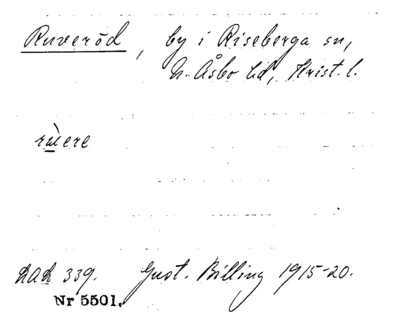 Ruveröd, by i Riseberga sn,
N. Åsbo hd, Krist. l.
rùere
LAL 339. Gust. Billing 1915-20.
Nr 5501.